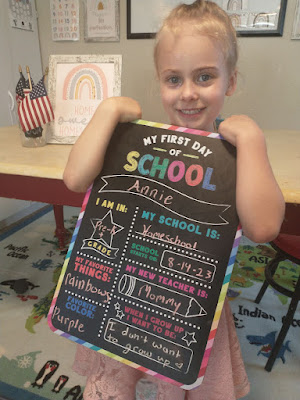 HOME
sweet
HOME
MY FIRST DAY
OF
SCHOOL
Annie
I AM IN:
Pre-K
GRADE
MY SCHOOL IS:
Homeschool
SCHOOL
STARTS ON:
8-14-23
MY FAVORITE
THINGS:
rainbows
MY NEW TEACHER IS:
Mommy
FAVORITE
COLOR:
Purple
WHEN I GROW UP
I WANT TO BE:
I don't want
to grow up
Indian